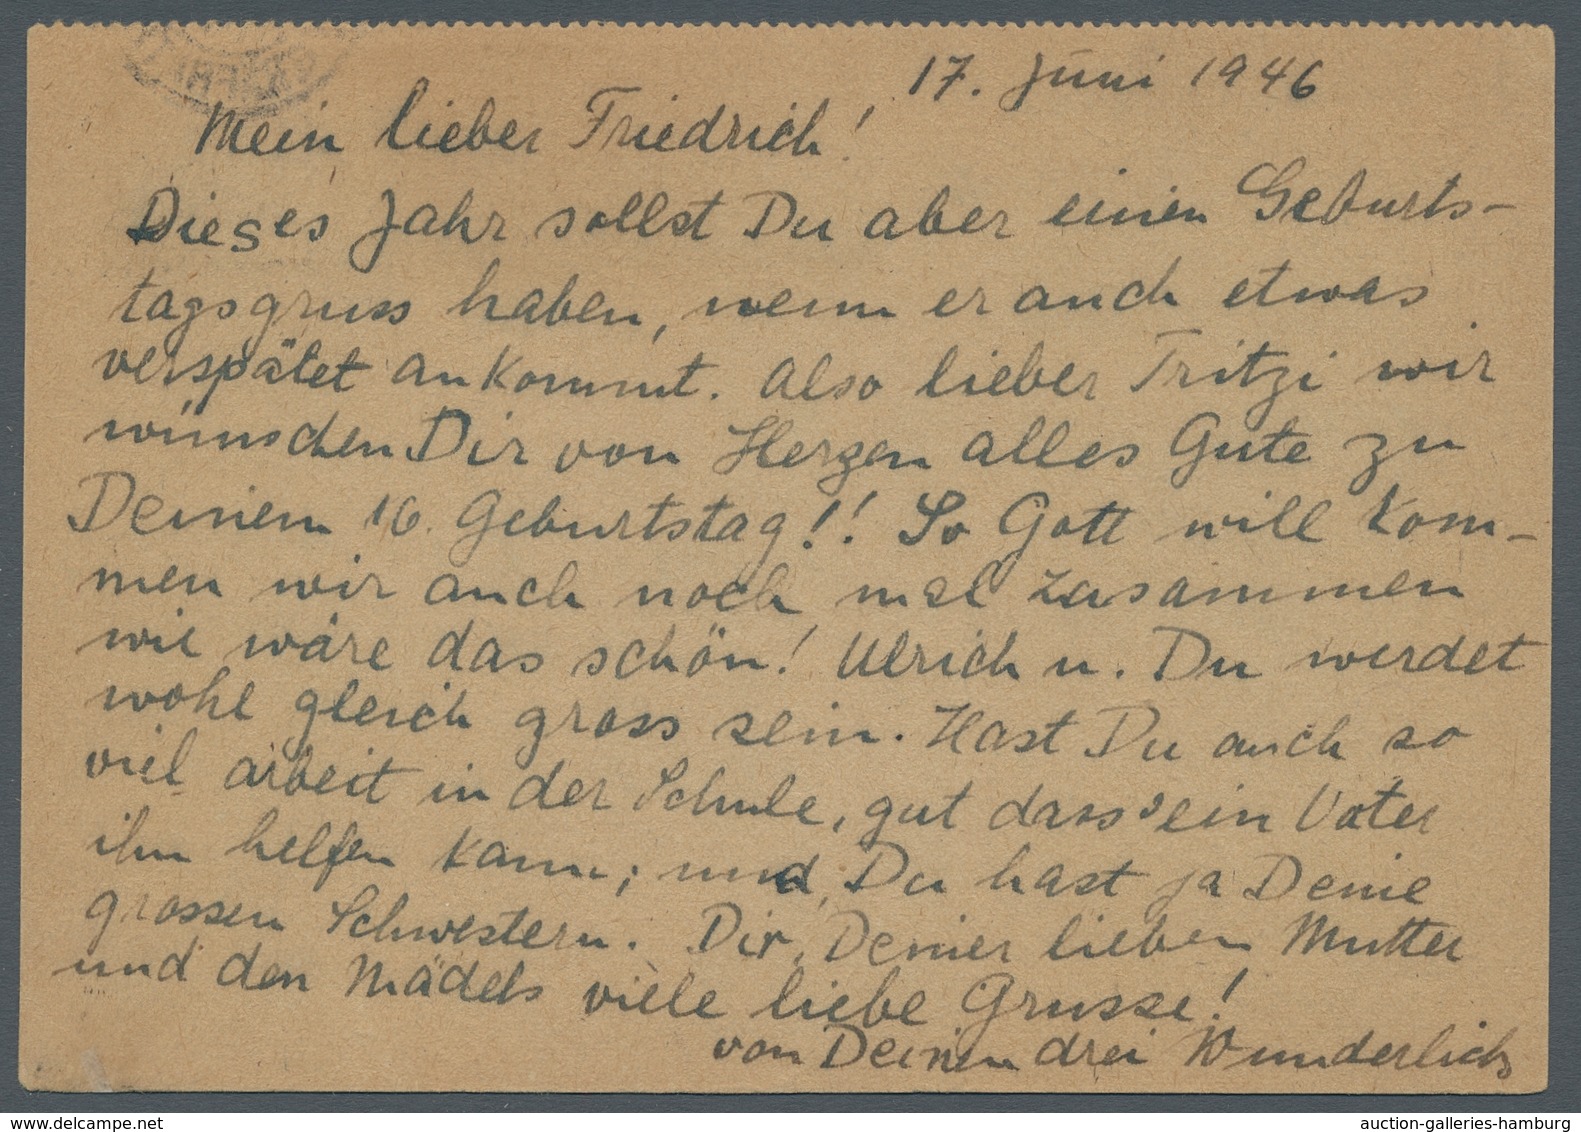 17. Juni 1946
Mein lieber Friedrich!
Dieses Jahr sollst Du aber einen Geburts-
tagsgruss haben, wenn er auch etwas
verspätet ankommt. Also lieber Fritzi wir
wünschen Dir von Herzen alles Gute zu
Deinem 16. Geburtstag!! So Gott will kom-
men wir auch noch mal zusammen
wie wäre das schön! Ulrich u. Du werdet
wohl gleich gross sein. Hast Du auch so
viel arbeit in der Schule, gut dass sein Vater
ihm helfen kann; und Du hast ja Deine
grossen Schwestern. Dir, Deiner lieben Mutter
und den Mädels viele liebe Grüsse!
von Deinen drei Wunderlichs
delcampe.net
auction-galleries-hamburg